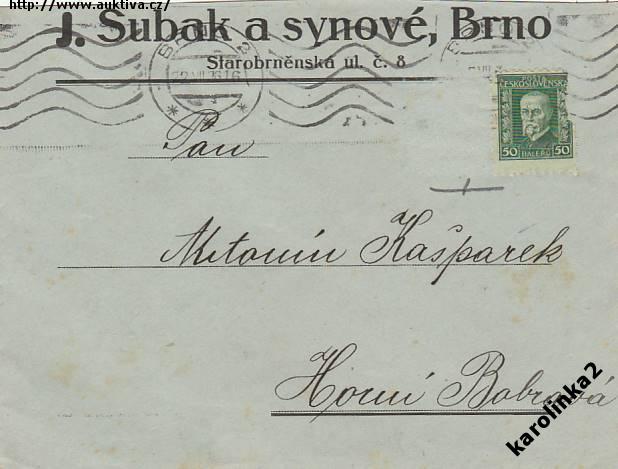 http://www.auktiva.cz/
J. Subak a synové, Brno
Starobrněnská ul. č. 8
BRNO 2
22.VII.26.16
POŠTA
ČESKOSLOVENSKÁ
50 HALÉŘŮ 50
Pan
Antonín Kašparek
Horní Bobrová
karolinka2